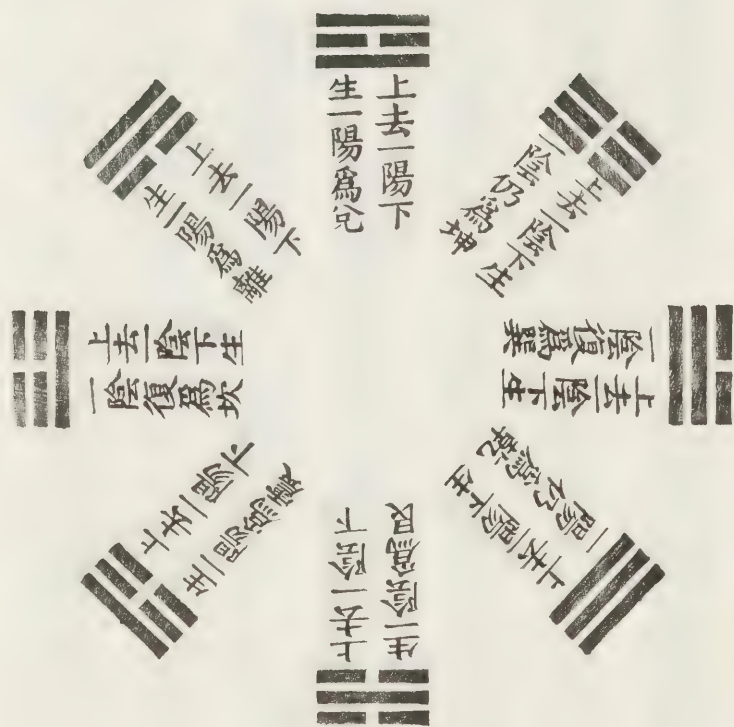 上去一陽下
生一陽爲兌
上去一陰下生
一陰仍爲坤
上去一陰下生
一陰復爲巽
上去一陽下生
一陽仍爲乾
上去一陰下
生一陰爲艮
上去一陽下
生一陽爲震
上去一陰下生
一陰復爲坎
上去一陽下
生一陽爲離